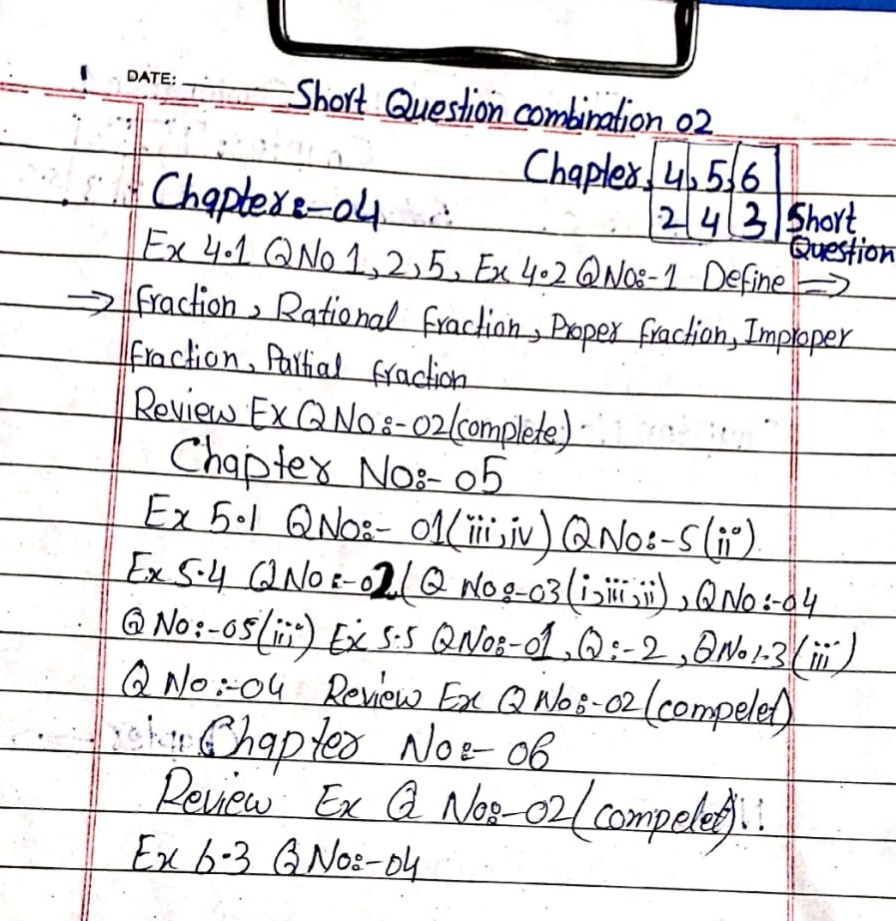 DATE:
Short Question combination 02
Chapter, 4,5,6
2 4 3 Short Question
Chapter:-04
Ex 4.1 QNo 1,2,5, Ex 4.2 QNo:-1 Define ⇒
⇒ fraction, Rational fraction, Proper fraction, Improper
fraction, Partial fraction
Review Ex QNo:-02(complete)
Chapter No:-05
Ex 5.1 QNo:- 01(iii,iv) QNo:-5(ii)
Ex 5.4 QNo:-02( Q No:-03(i,iii,ii), QNo:-04
Q No:-05(iii) Ex 5.5 QNo:-01, Q:-2, QNo:-3(iii)
Q No:-04 Review Ex Q No:-02(compelet)
Chapter No:- 06
Review Ex Q No:-02(compelet)!!
Ex 6.3 QNo:-04